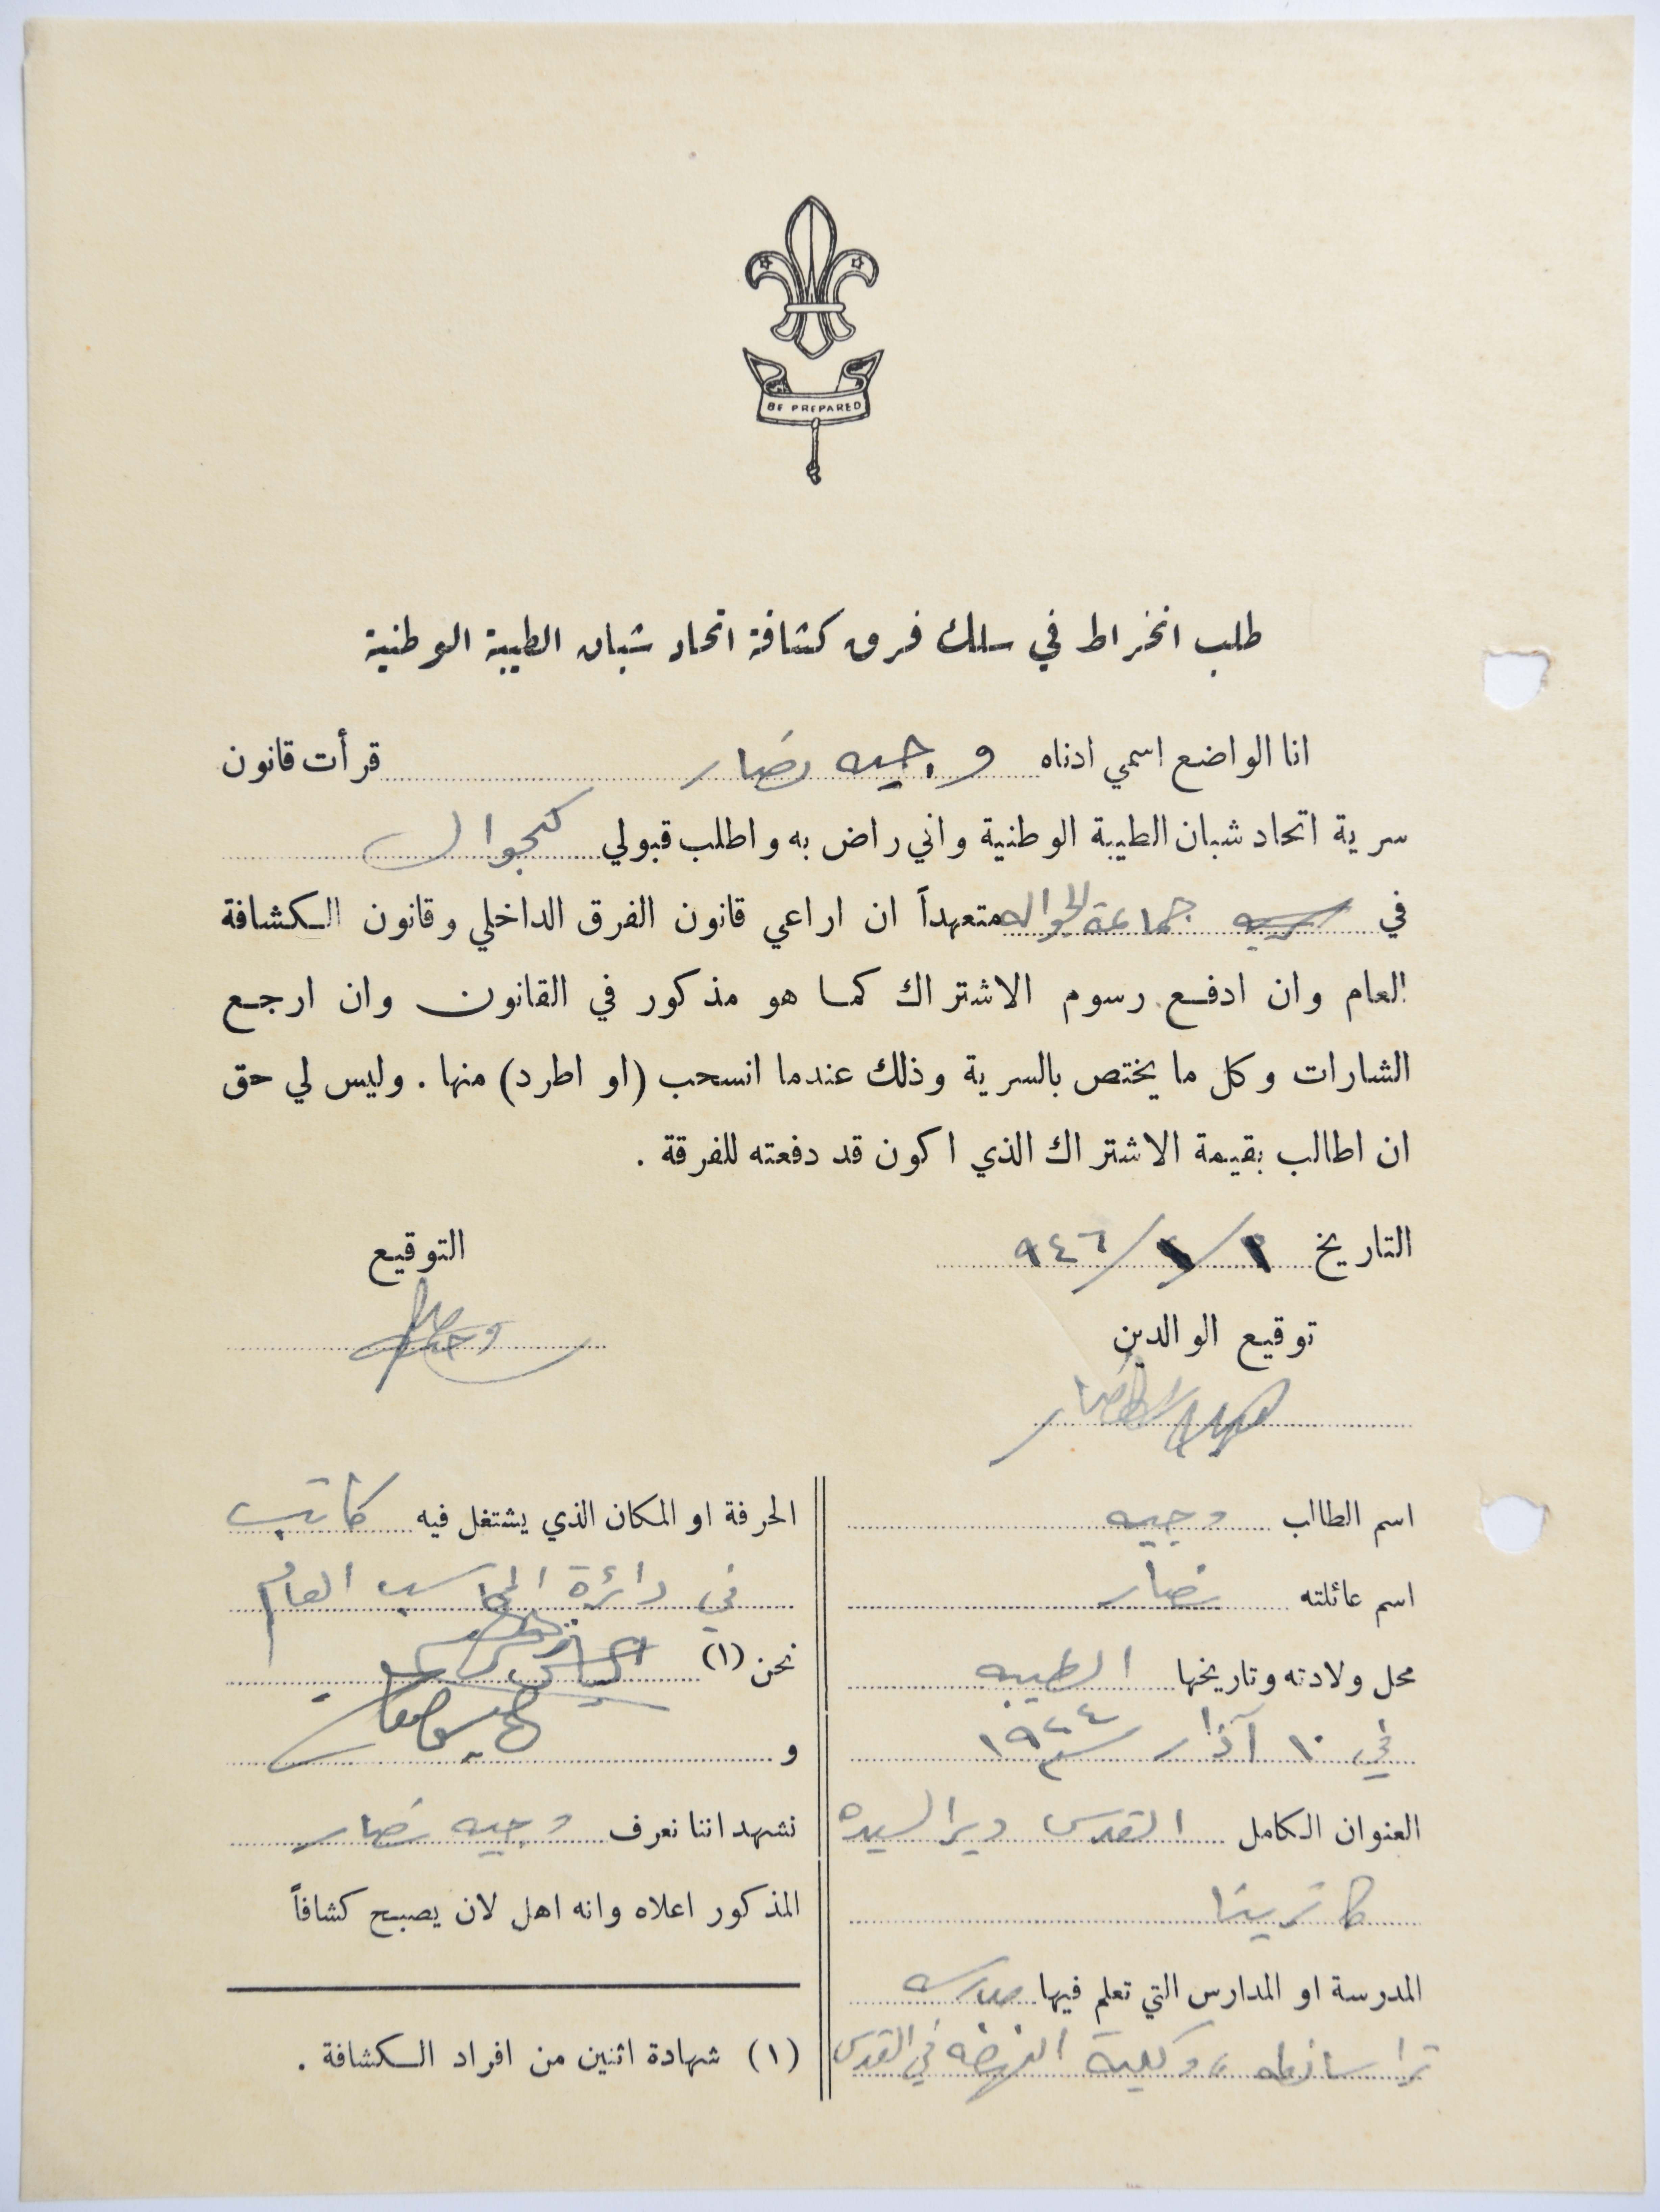 BE PREPARED
طلب انخراط في سلك فرق كشافة اتحاد شبان الطيبة الوطنية
انا الواضع اسمي ادناه وجيه نصار قرأت قانون
سرية اتحاد شبان الطيبة الوطنية واني راض به واطلب قبولي كجوال
في جماعة الجواله متعهداً ان اراعي قانون الفرق الداخلي وقانون الكشافة
العام وان ادفع رسوم الاشتراك كما هو مذكور في القانون وان ارجع
الشارات وكل ما يختص بالسرية وذلك عندما انسحب (او اطرد) منها . وليس لي حق
ان اطالب بقيمة الاشتراك الذي اكون قد دفعته للفرقة .
التاريخ ١/١/٩٤٦
التوقيع
توقيع الوالدين
اسم الطالب وجيه
اسم عائلته نصار
محل ولادته وتاريخها الطيبه
في ١٠ آذار سنة ١٩٢٤
العنوان الكامل القدس دير السيده
كاترينا
المدرسة او المدارس التي تعلم فيها مدرسه
تراسانطه وكلية النهضه في القدس
الحرفة او المكان الذي يشتغل فيه كاتب
في دائرة المحاسب العام
نحن (١)
و
نشهد اننا نعرف وجيه نصار
المذكور اعلاه وانه اهل لان يصبح كشافاً
(١) شهادة اثنين من افراد الكشافة .